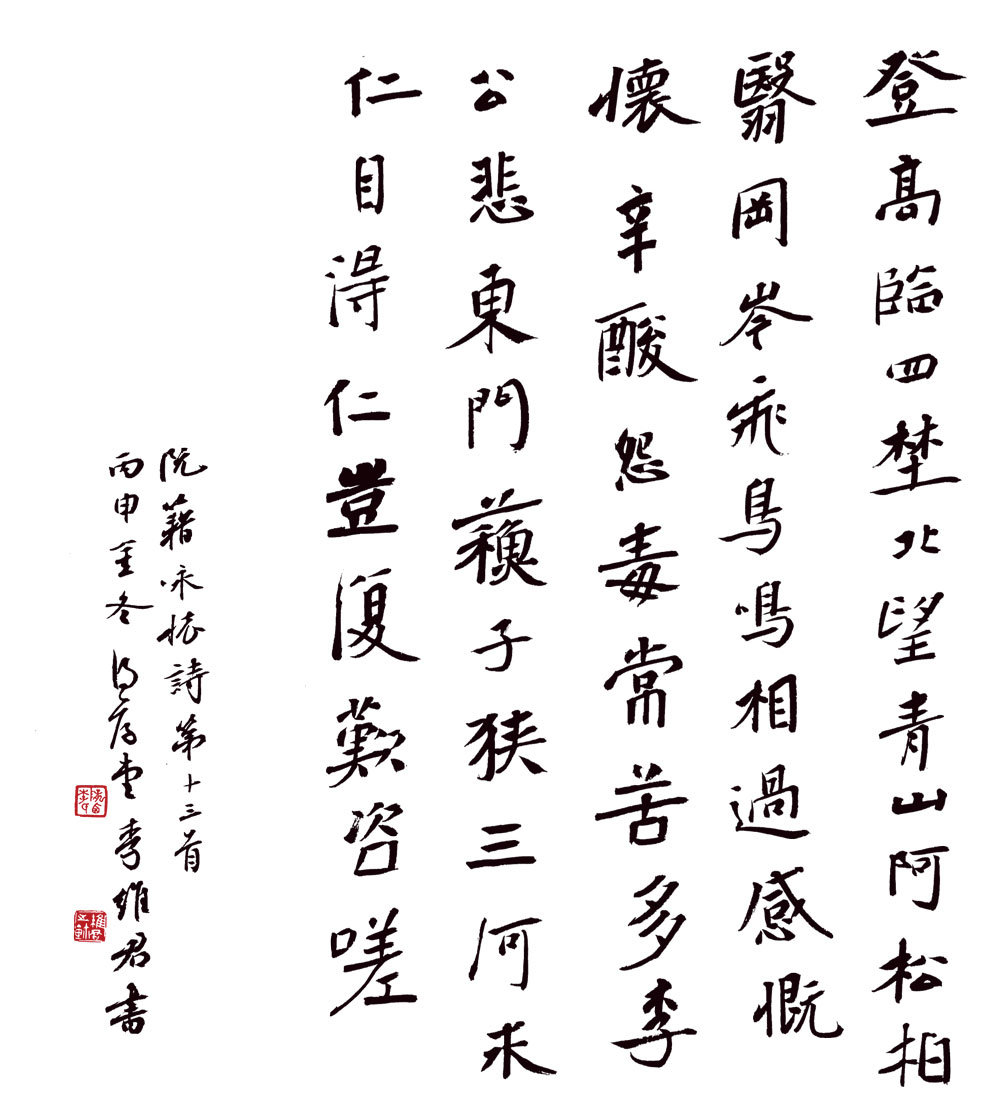 登高臨四埜北望青山阿松柏
翳岡岑飛鳥鳴相過感慨
懷辛酸怨毒常苦多李
公悲東門蘓子狹三河求
仁目得仁豈復歎咨嗟
阮藉咏怀詩第十三首
丙申冬堂李維君書